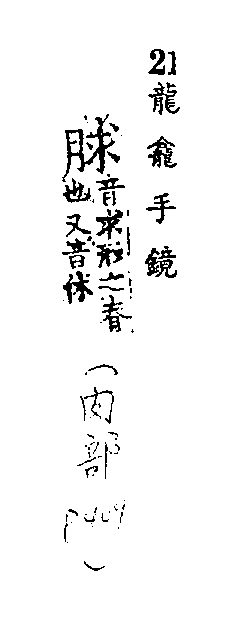 21 龍龕手鏡
脙音求形之春
也又音休
(肉部 p409)